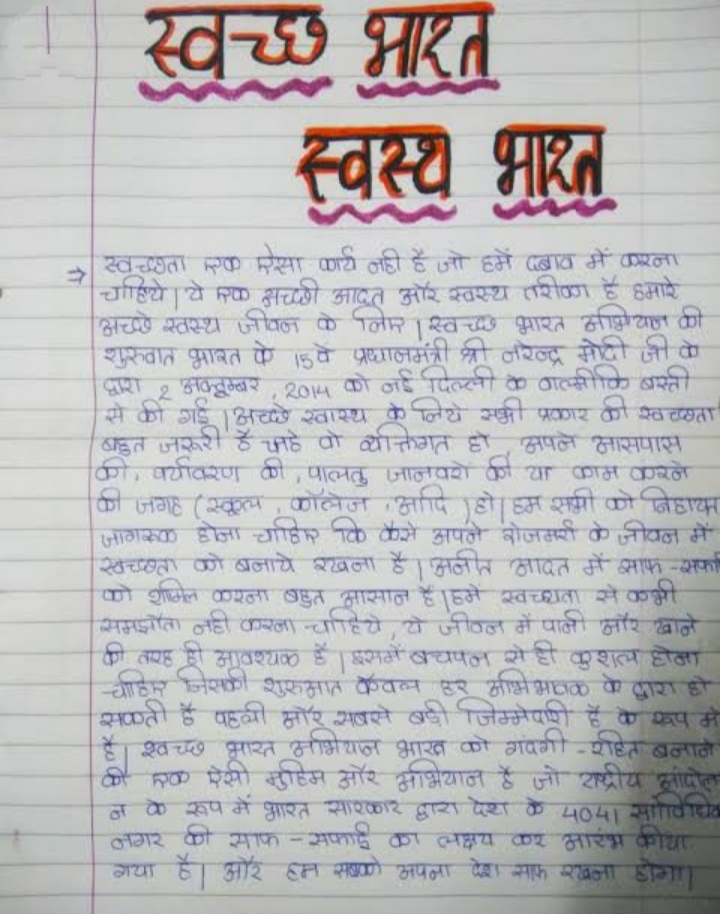 स्वच्छ भारत
स्वस्थ भारत
⇒ स्वच्छता एक ऐसा कार्य नही है जो हमें दबाव में करना
चाहिये। ये एक अच्छी आदत और स्वस्थ तरीका है हमारे
अच्छे स्वस्थ जीवन के लिए। स्वच्छ भारत अभियान की
शुरुवात भारत के 15वे प्रधानमंत्री श्री नरेन्द्र मोदी जी के
द्वारा 2 अक्टुम्बर, 2014 को नई दिल्ली के वाल्मीकि बस्ती
से की गई। अच्छे स्वास्थ के लिये सभी प्रकार की स्वच्छता
बहुत जरूरी है चाहे वो व्यक्तिगत हो, अपने आसपास
की, पर्यावरण की, पालतु जानवरों की या काम करने
की जगह (स्कूल, कॉलेज, आदि) हो। हम सभी को निहायत
जागरूक होना चाहिए कि कैसे अपने रोजमर्रा के जीवन में
स्वच्छता को बनाये रखना है। अपनी आदत में साफ-सफाई
को शामिल करना बहुत आसान है। हमें स्वच्छता से कभी
समझौता नही करना चाहिये, ये जीवन में पानी और खाने
की तरह ही आवश्यक है। इसमें बचपन से ही कुशल होना
चाहिए जिसकी शुरुआत केवल हर अभिभावक के द्वारा हो
सकती है पहली और सबसे बडी जिम्मेदारी है के रूप में
है। स्वच्छ भारत अभियान भारत को गंदगी-रहित बनाने
की एक ऐसी मुहिम और अभियान है जो राष्ट्रीय आंदोल
न के रूप में भारत सारकार द्वारा देश के 4041 सांविधिक
नगर की साफ-सफाई का लक्षय कर आरंभ कीया
गया है। और हम सबको अपना देश साफ रखना होगा।